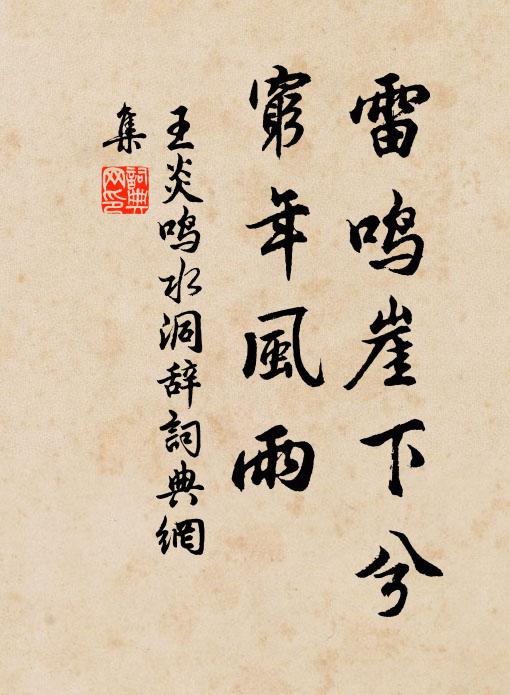 雷鸣崖下兮
窮年風雨
王炎鸣水洞辞詞典網
集
詞典
网印